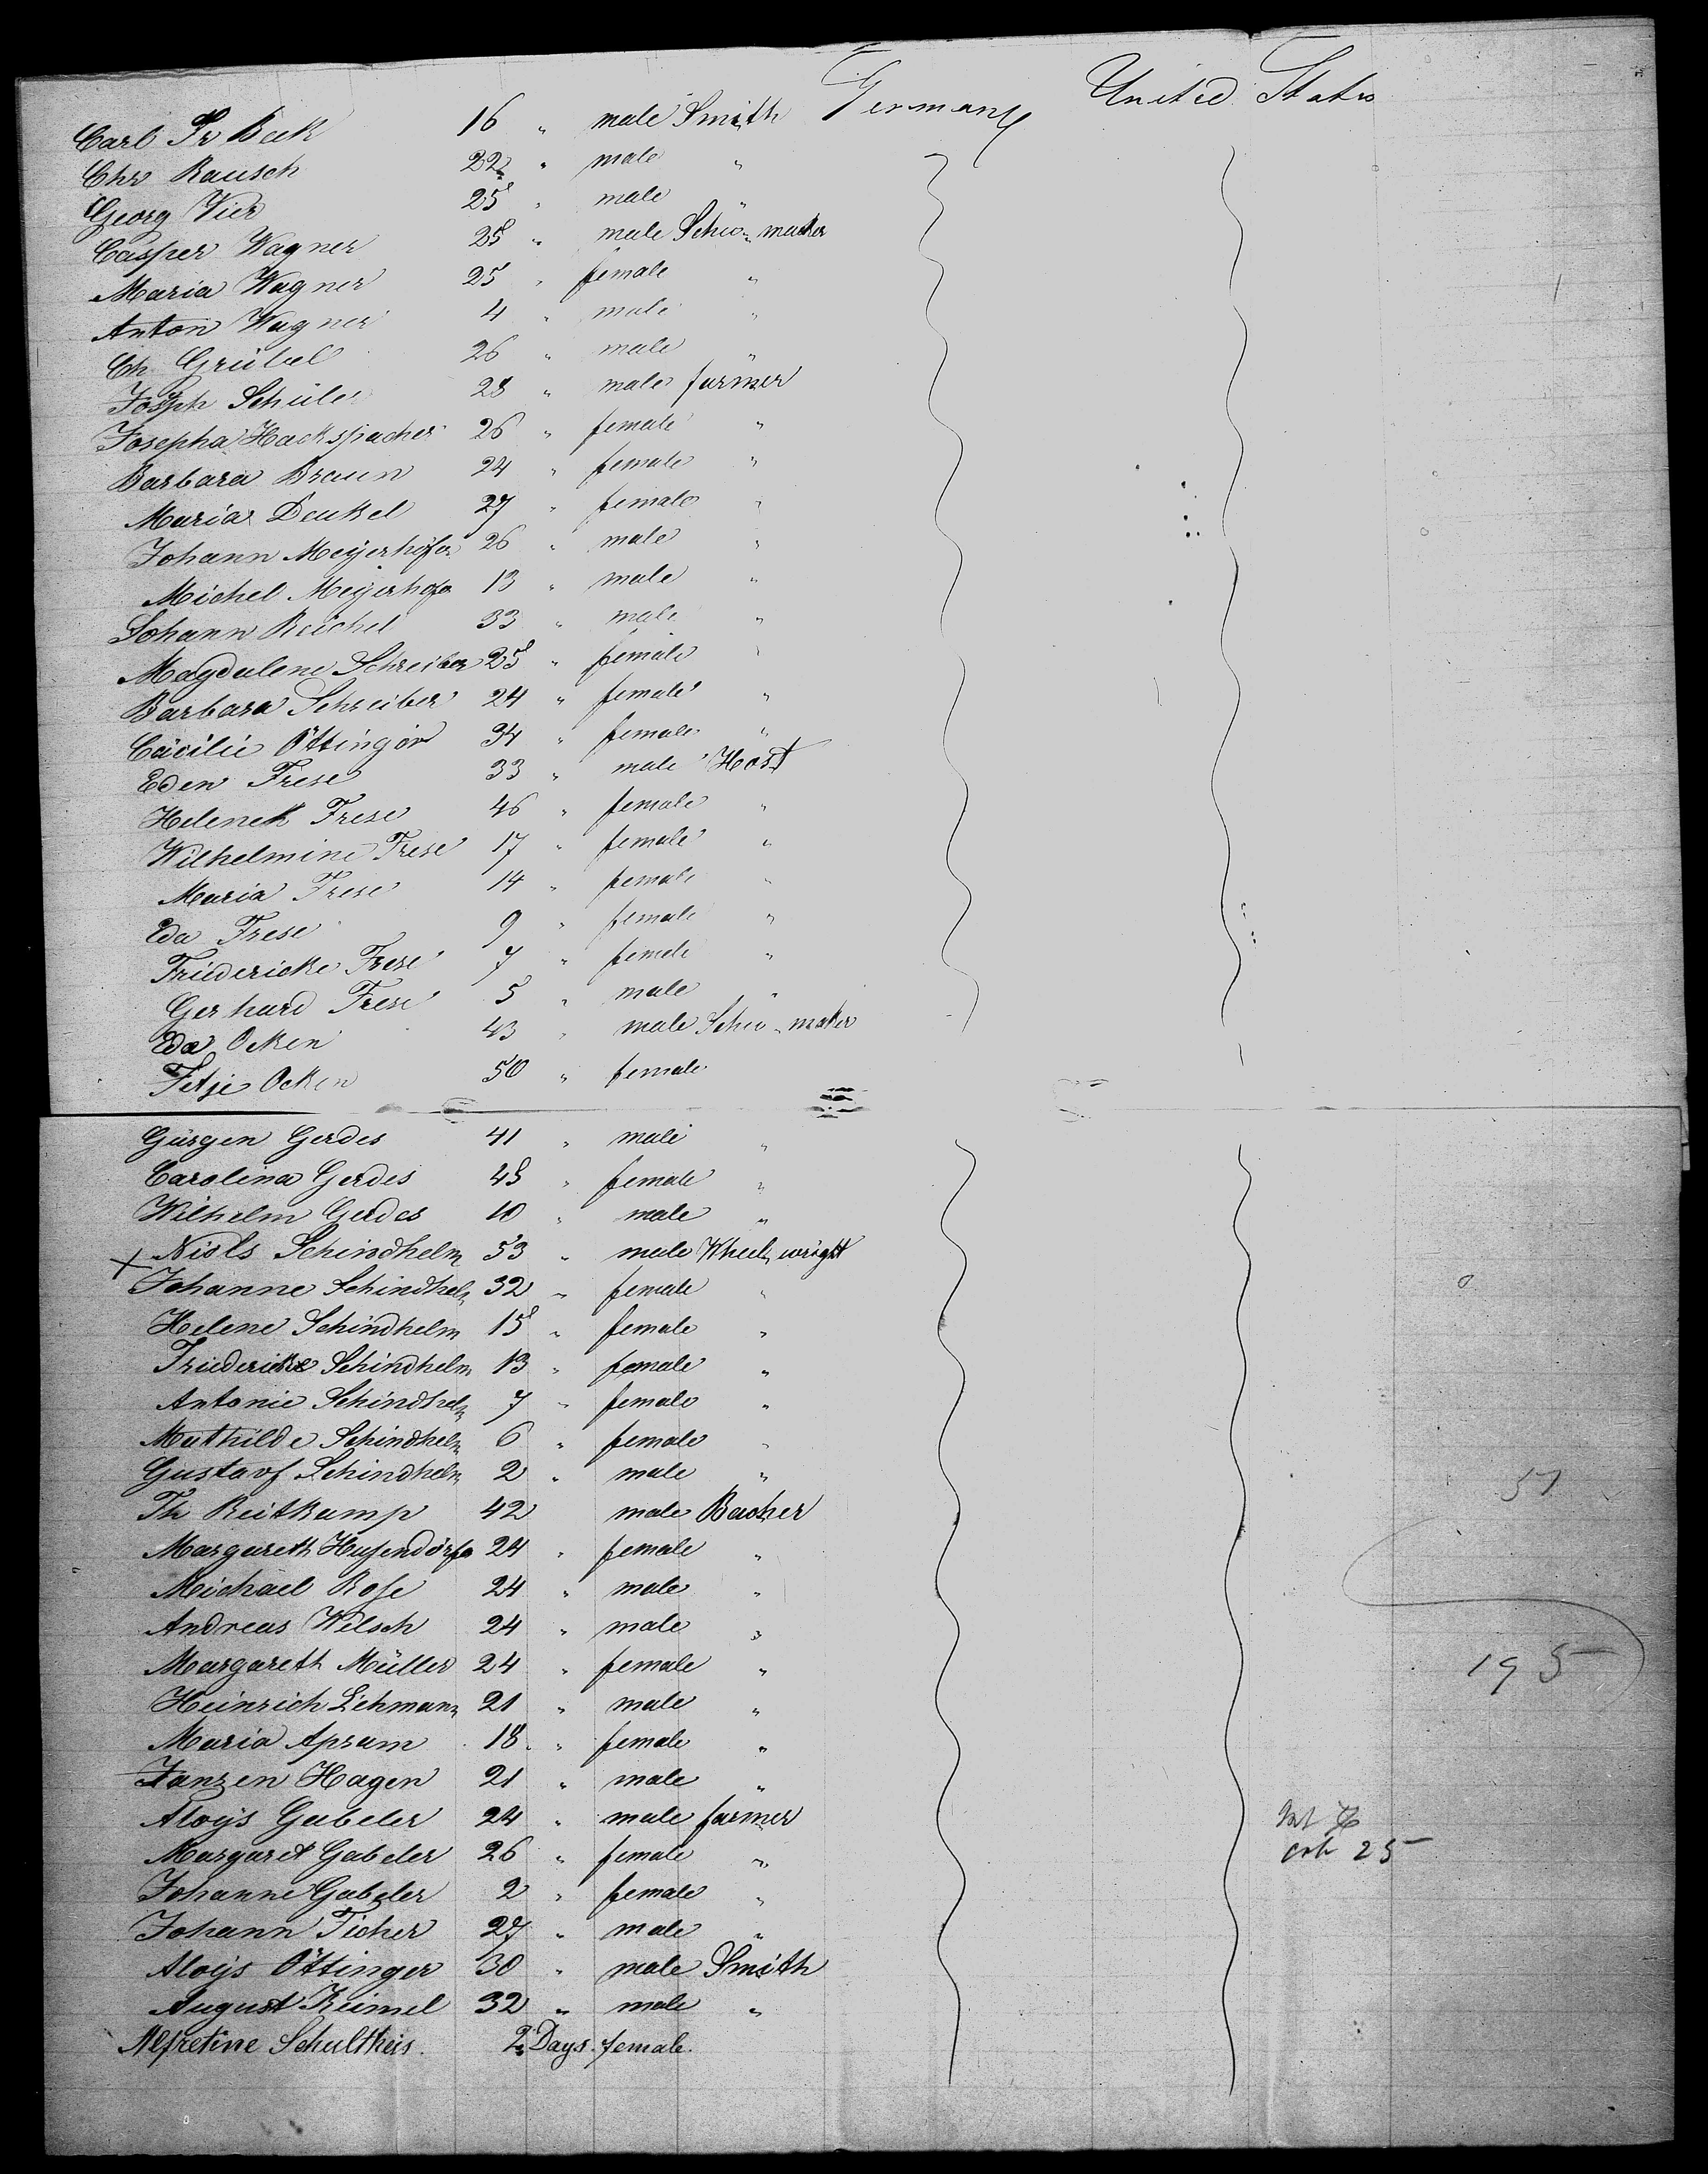 Carl Fr Beck 16 " male Smith Germany United States
Chr Rausch 22 " male "
Georg Vier 25 " male "
Casper Wagner 28 " male Schu-macker
Maria Wagner 25 " female "
Anton Wagner 4 " male "
Ch Grübel 26 " male "
Joseph Schüler 28 " male farmer
Josepha Hackspacher 26 " female "
Barbara Braun 24 " female "
Maria Deukel 27 " female "
Johann Meÿerhöfer 26 " male "
Michel Meÿerhofer 13 " male "
Johann Reichel 33 " male "
Magdalene Schreiber 25 " female "
Barbara Schreiber 24 " female "
Cäcilie Öttinger 34 " female "
Eden Frese 33 " male Host
Helene Frese 46 " female "
Wilhelmine Frese 17 " female "
Maria Frese 14 " female "
Eda Frese 9 " female "
Friedericke Frese 7 " female "
Gerhard Frese 5 " male "
Eda Ocken 43 " male Schu-maker
Fetje Ocken 50 " female
Gürgen Gerdes 41 " male "
Carolina Gerdes 48 " female "
Wilhelm Gerdes 10 " male "
X Niols Schindhelm 53 " male Wheel wright
Johanne Schindhelm 32 " female "
Helene Schindhelm 15 " female "
Friedericke Schindhelm 13 " female "
Antonie Schindhelm 7 " female "
Mathilde Schindhelm 6 " female "
Gustavf Schindhelm 2 " male "
Th Reitkamp 42 male Backer
Margareth Hufendörfer 24 " female "
Michael Rose 24 " male "
Andreas Welsch 24 " male "
Margareth Müller 24 " female "
Heinrich Lehmann 21 " male "
Maria Apram 18 " female "
Janzen Hagen 21 " male "
Aloÿs Gabeler 24 " male farmer
Margaret Gabeler 26 " female "
Johanne Gabeler 2 " female "
Johann Ticher 27 " male "
Aloÿs Öttinger 30 " male Smith
August Keimel 32 " male "
Alfretine Schultheis. 2 Days. female.
51
195
25